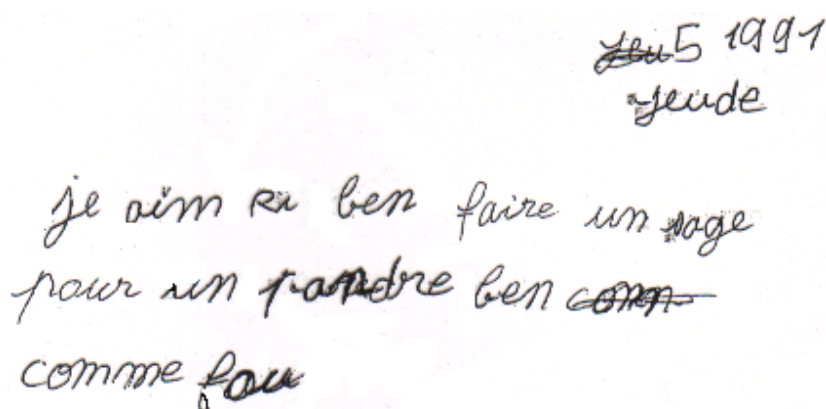 5 1991
jeude
je aim ben faire un sage
pour un ben
comme fou